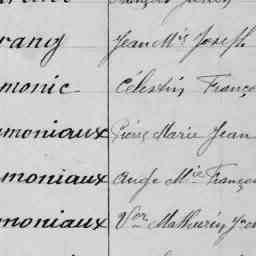 rang Jean Mie Joseph
monic Célestin Franço
moniaux Pierre Marie Jean
moniaux Ange Mie François
moniaux Vor Mathurin